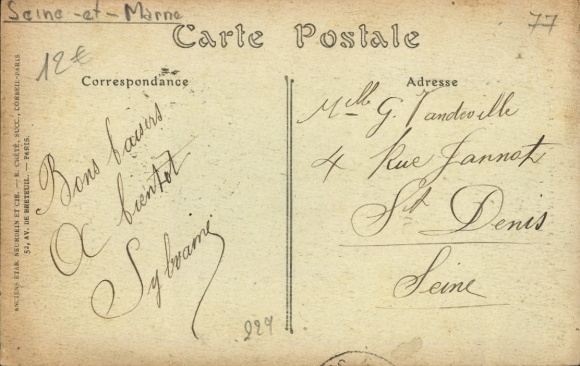 Seine-et-Marne
77
Carte Postale
12€
Correspondance
Adresse
Bons baisers
A bientot
Sylvaine
Mlle G. Vandeville
4 Rue Jannot
St Denis
Seine
227
ANCIENS ETAB. NEURDEIN ET CIE. — E. CRÉTÉ, SUCC., CORBEIL-PARIS
52, AV. DE BRETEUIL. — PARIS.